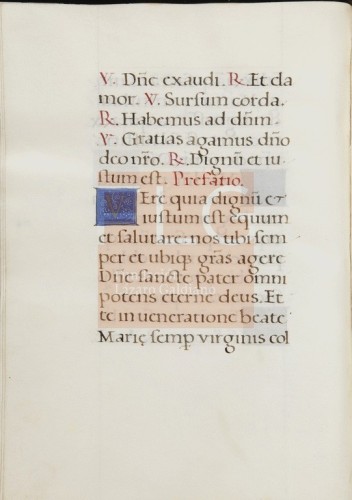 V. Dñe exaudi. R. Et cla
mor. V. Sursum corda.
R. Habemus ad dñm.
V. Gratias agamus dño
deo nro. R. Dignũ et iu
stum est. Prefatio.
VEre quia dignũ et
iustum est equum
et salutare: nos ubi sem
per et ubiqꝫ grãs agere
Dñe sancte pater omni
potens eterne deus. Et
te in ueneratione beate
Marię semꝑ virginis col